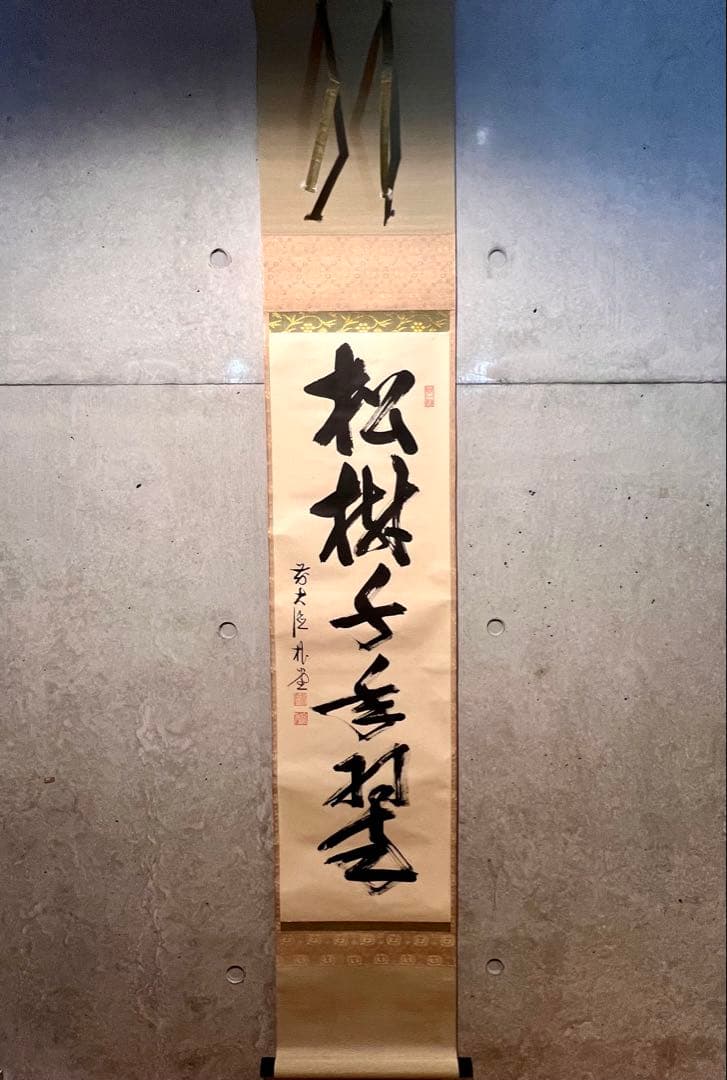 松樹千年翠
前大徳 根堂